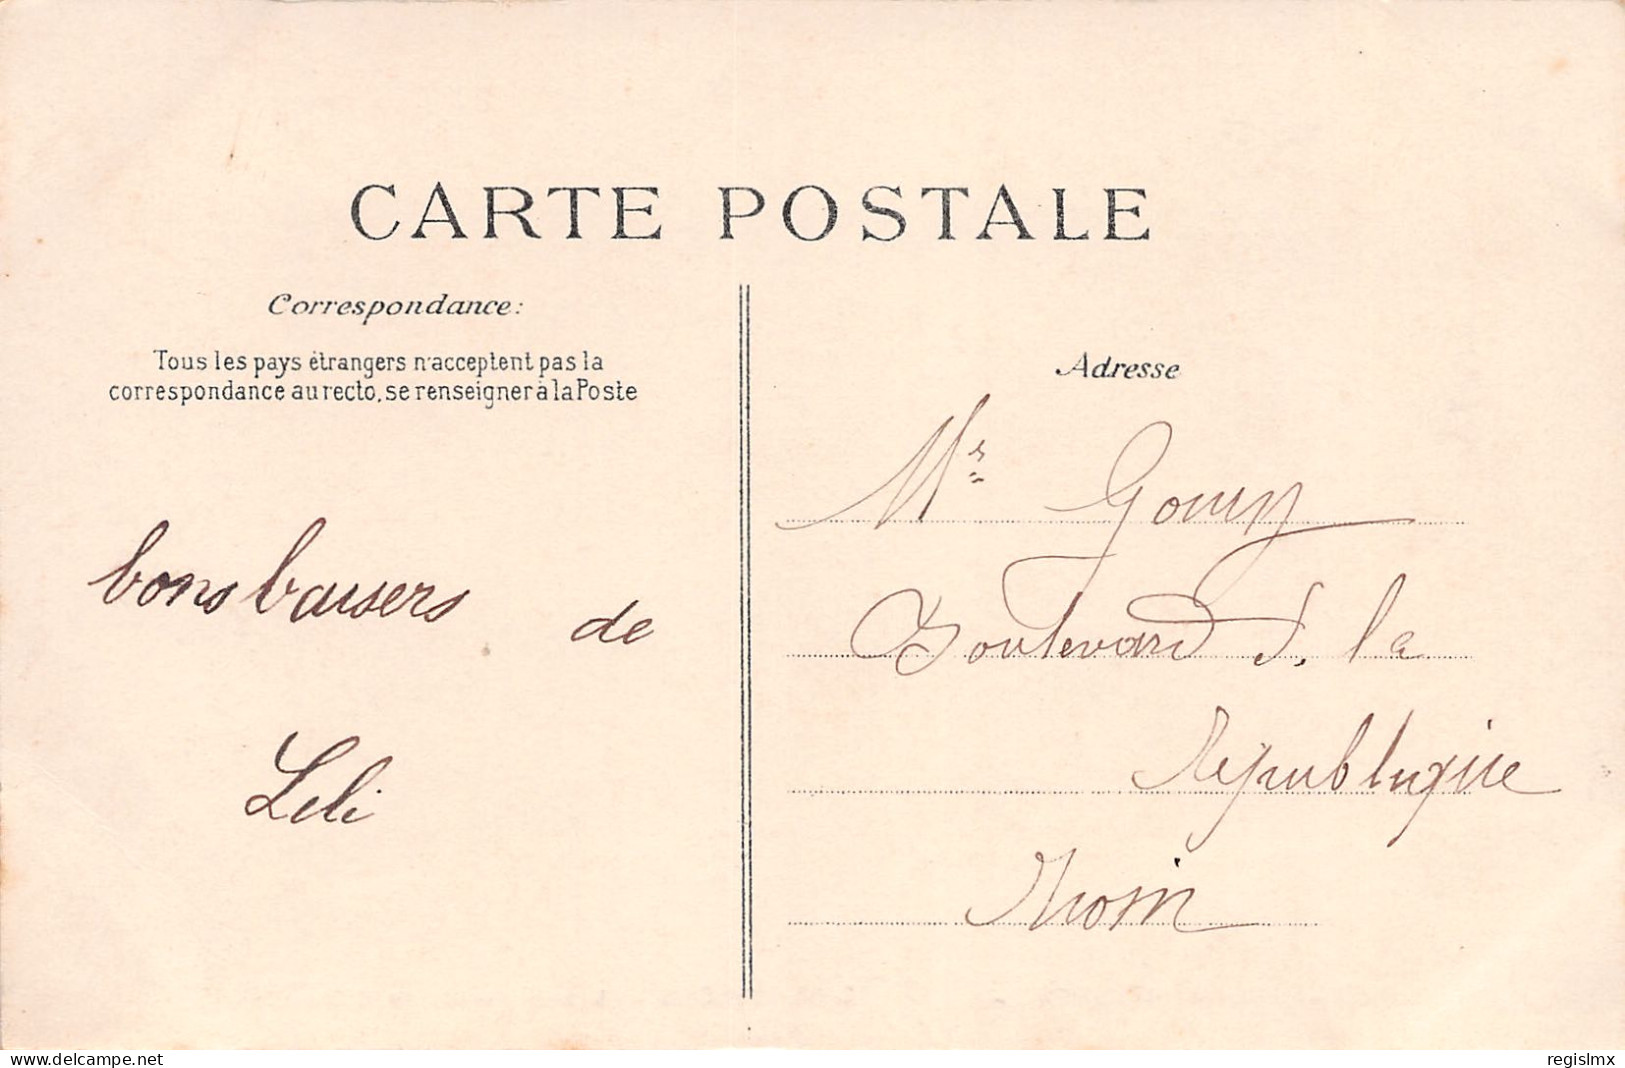 CARTE POSTALE
Correspondance:
Tous les pays étrangers n'acceptent pas la
correspondance au recto, se renseigner à la Poste
bons baisers de
Lili
Adresse
Mr Goury
Boulevard d. la
République
www.delcampe.net
regislmx